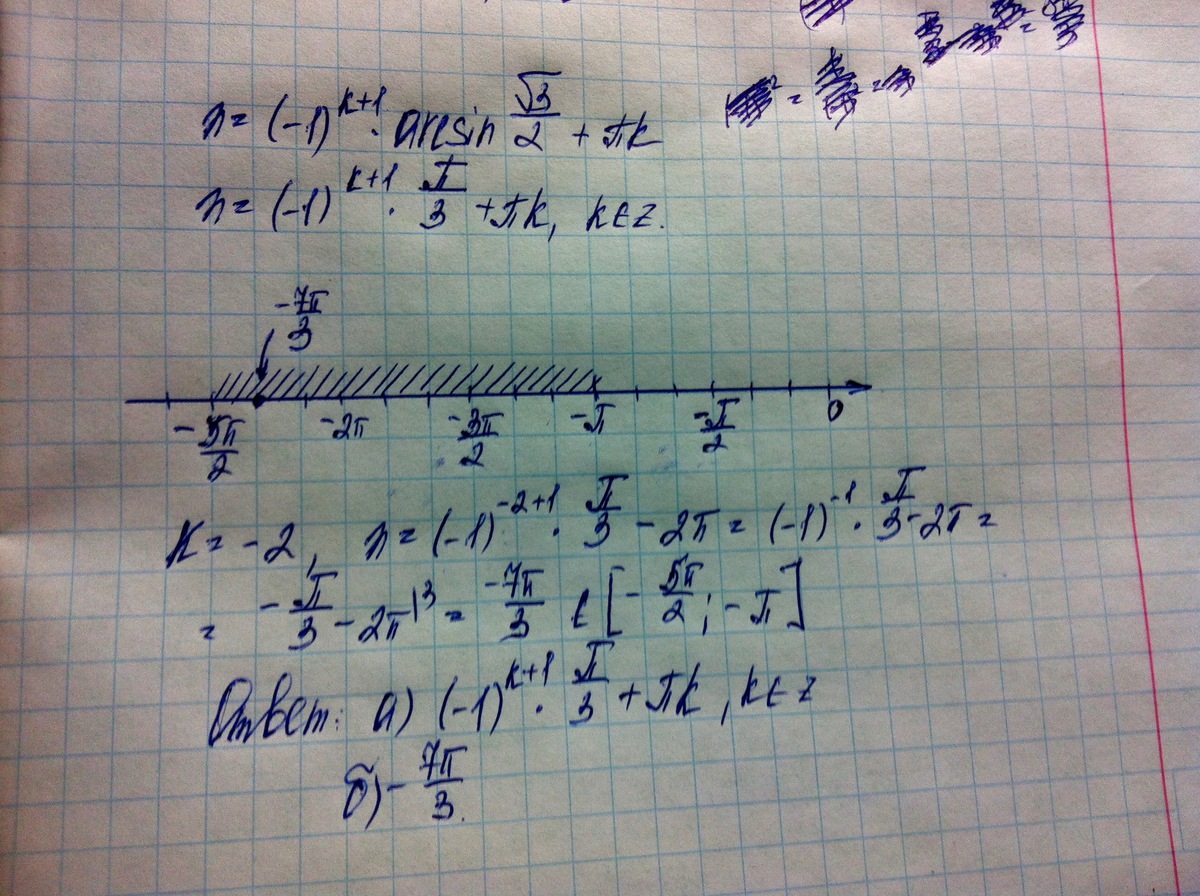 x = (-1)^{k+1} · arcsin √3/2 + πk
x = (-1)^{k+1} · π/3 + πk, k∈Z.
-7π/3
-5π/2 -2π -3π/2 -π -π/2 0
K = -2, x = (-1)^{-2+1} · π/3 - 2π = (-1)^{-1} · π/3 - 2π =
= -π/3 - 2π|3 = -7π/3 ∈ [-5π/2; -π]
Ответ: а) (-1)^{k+1} · π/3 + πk, k∈Z
б) -7π/3.